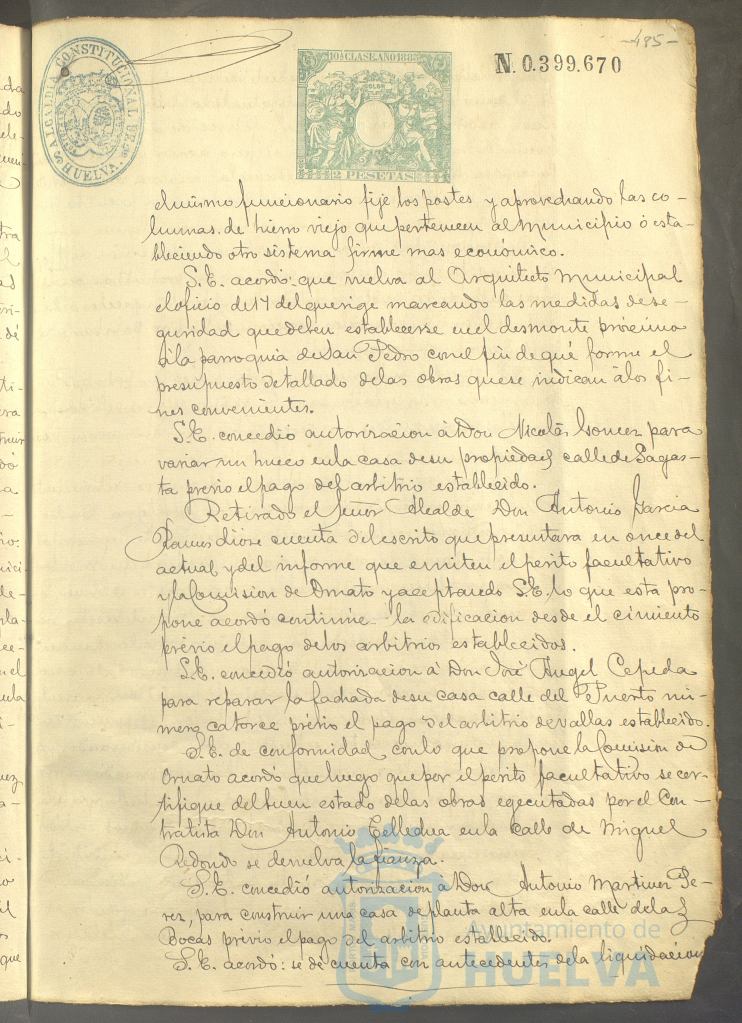 -485-
ALCALDIA CONSTITUCIONAL DE
HUELVA
10ª CLASE. AÑO 188
2 PESETAS
N. 0.399.670
el mismo funcionario fije los postes y aprovechando las co-
lumnas de hierro viejo que pertenecen al Municipio ó esta-
bleciendo otro sistema firme mas económico.
S.E. acordó: que vuelva al Arquitecto Municipal
el oficio de 17 del que rige marcando las medidas de se-
guridad que deben establecerse en el desmonte próximo
á la parroquia de San Pedro con el fin de qué forme el
presupuesto detallado de las obras que se indican á los fi-
nes convenientes.
S.E. concedió autorizacion á Don Nicolás Gomez para
variar un hueco en la casa de su propiedad calle de Sagas-
ta previo el pago del arbitrio establecido.
Retirado el Señor Alcalde Don Antonio Garcia
Ramos dióse cuenta del escrito que presentara en once del
actual y del informe que emiten el perito facultativo
y la Comision de Ornato y aceptando S.E. lo que esta pro-
pone acordó continúe la edificacion desde el cimiento
prévio el pago de los arbitrios establecidos.
S.E. concedió autorizacion á Don José Angel Cepeda
para reparar la fachada de su casa calle del Puerto nú-
mero catorce prévio el pago del arbitrio de vallas establecido.
S.E. de conformidad con lo que propone la Comisión de
Ornato acordó que luego que por el périto facultativo se cer-
tifique del buen estado de las obras egecutadas por el Con-
tratista Don Antonio en la calle de Miguel
Redondo se devuelva la fianza.
S.E. concedió autorizacion á Don Antonio Martinez Pe-
rez, para construir una casa de planta alta en la calle de las
Bocas prévio el pago del arbitrio establecido.
S.E. acordó: se dé cuenta con antecedentes de la liquidacion
Ayuntamiento de
HUELVA